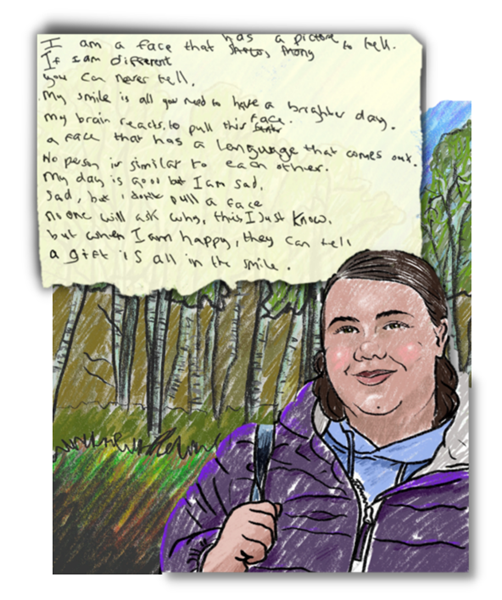 I am a face that has a picture to tell.
If I am different
you can never tell.
My smile is all you need to have a brighter day.
My brain reacts, to pull this face.
a face that has a language that comes out.
No person is similar to each other.
My day is good but I am sad.
Sad, but I don't pull a face
no one will ask why, this I Just know.
but when I am happy, they can tell
a gift is all in the smile.